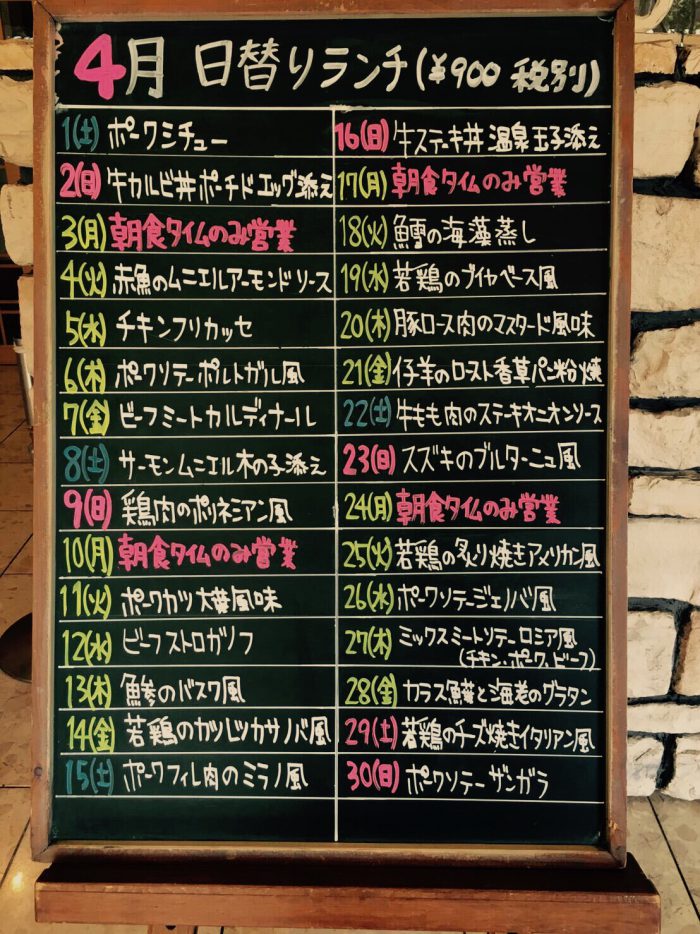 4月 日替りランチ(¥900 税別)
1(土) ポークシチュー
2(日) 牛カルビ丼ポーチドエッグ添え
3(月) 朝食タイムのみ営業
4(火) 赤魚のムニエルアーモンドソース
5(水) チキンフリカッセ
6(木) ポークソテーポルトガル風
7(金) ビーフミートカルディナール
8(土) サーモンムニエル木の子添え
9(日) 鶏肉のポリネシアン風
10(月) 朝食タイムのみ営業
11(火) ポークカツ大葉風味
12(水) ビーフストロガノフ
13(木) 鯵のバスク風
14(金) 若鶏のカツレツカサノバ風
15(土) ポークフィレ肉のミラノ風
16(日) 牛ステーキ丼 温泉玉子添え
17(月) 朝食タイムのみ営業
18(火) 鱈の海藻蒸し
19(水) 若鶏のブイヤベース風
20(木) 豚ロース肉のマスタード風味
21(金) 仔羊のロースト香草パン粉焼
22(土) 牛もも肉のステーキオニオンソース
23(日) スズキのブルターニュ風
24(月) 朝食タイムのみ営業
25(火) 若鶏の炙り焼きアメリカン風
26(水) ポークソテージェノバ風
27(木) ミックスミートソテーロシア風
(チキン・ポーク、ビーフ)
28(金) カラス鰈と海老のグラタン
29(土) 若鶏のチーズ焼きイタリアン風
30(日) ポークソテーザンガラ